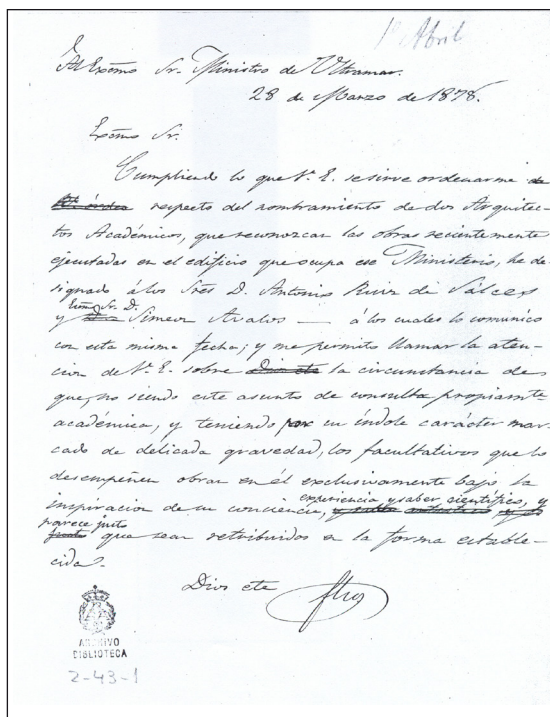 1º Abril
Al Excmo Sr. Ministro de Ultramar.
28 de Marzo de 1878.
Excmo Sr.
Cumpliendo lo que V. E. se sirve ordenarme de
respecto del nombramiento de dos Arquitec-
tos Académicos, que reconozcan las obras recientemente
ejecutadas en el edificio que ocupa ese Ministerio, he de-
signado á los Sres D. Antonio Ruiz de Sálces
y Excmo Sr. D. Simeon Avalos — á los cuales lo comunico
con esta misma fecha; y me permito llamar la aten-
cion de V. E. sobre la circunstancia de
que, no siendo este asunto de consulta propiamte
académica, y teniendo por su índole carácter mar-
cado de délicada gravedad, los facultativos que lo
desempeñen obran en él exclusivamente bajo la
inspiracion de su conciencia, experiencia y saber científico, y
parece justo que sean retribuidos en la forma estable-
cida.
Dios etc
ARCHIVO
BIBLIOTECA
2-43-1